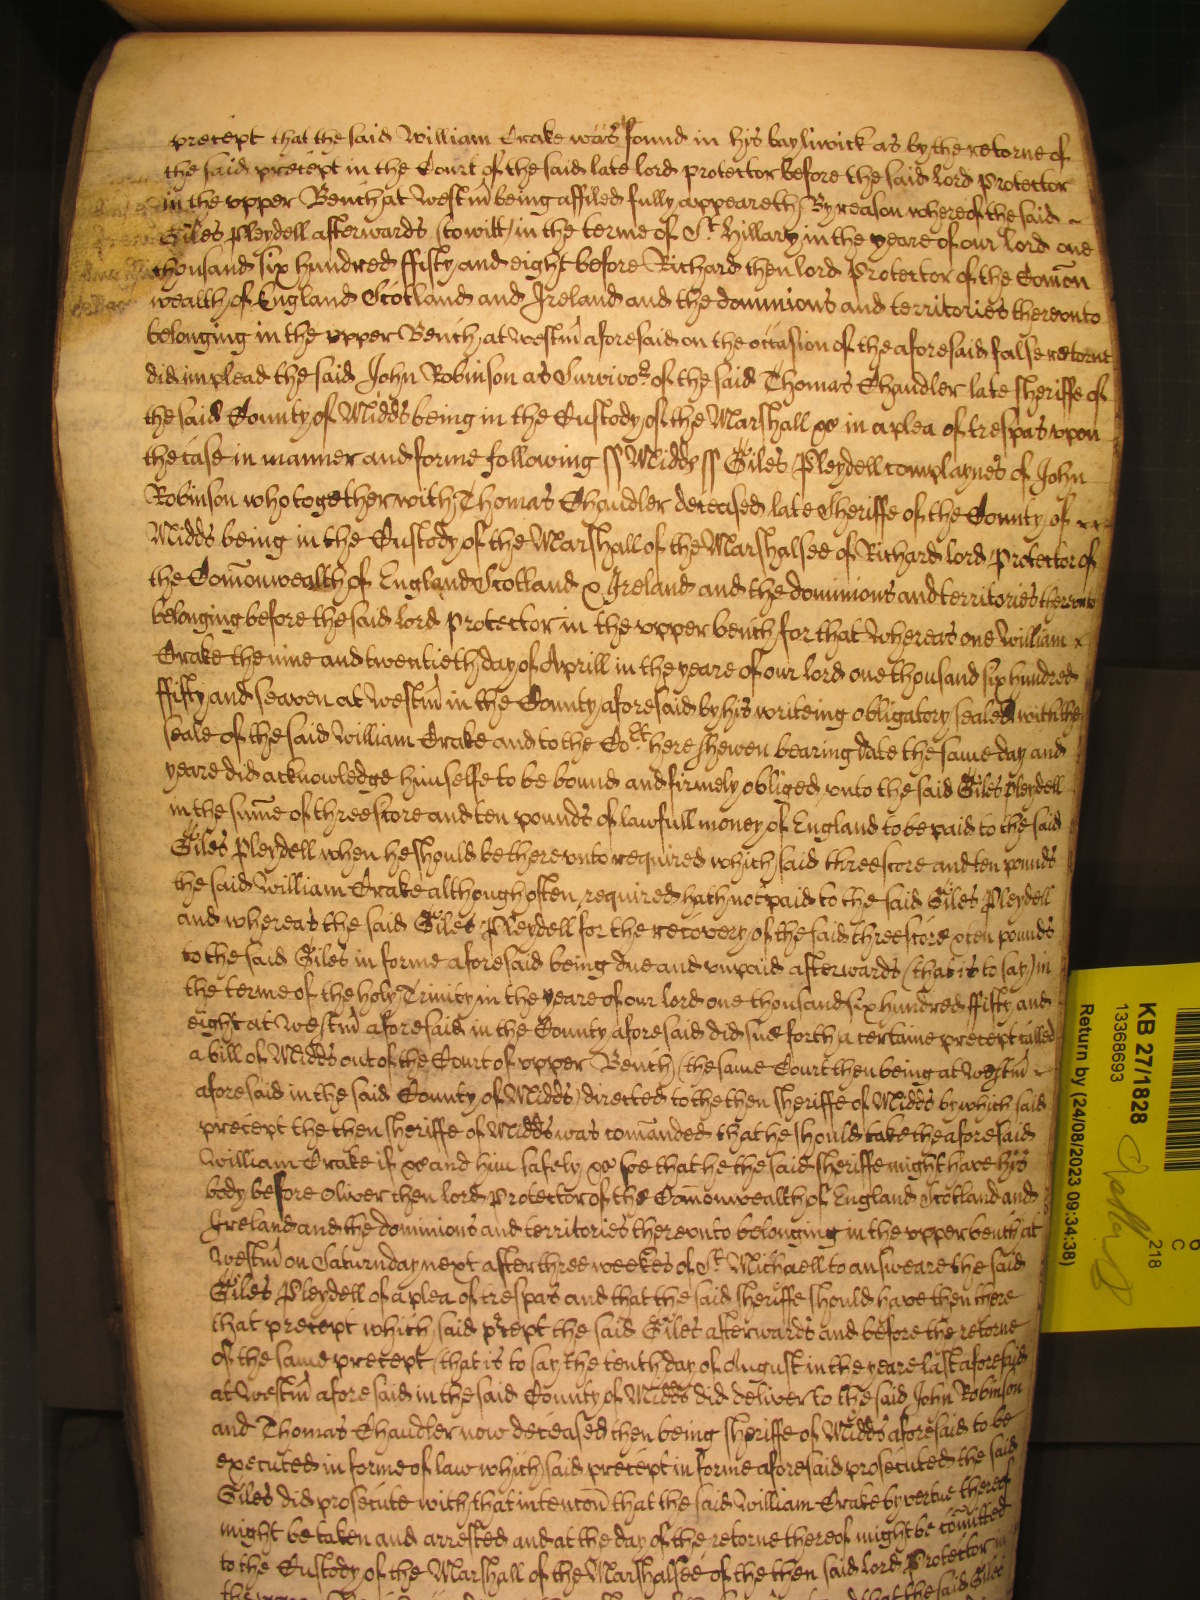 precept that the said William Crake was not found in his bayliwick as by the retorne of
the said precept in the Court of the said late lord protector before the said Lord Protector
in the upper Bench at Westm̃ being affiled fully appeareth By reason whereof the said
Giles Pleydell afterwards (to witt) in the terme of St Hillary in the yeare of our Lord one
thousand six hundred ffifty and eight before Richard then lord Protector of the Com̃on
wealth of England Scotland and Ireland and the dominions and territories thereonto
belonging in the upper Bench at Westm̃ aforesaid on the occasion of the aforesaid false retorne
did implead the said John Robinson as Survivor of the said Thomas Chandler late Sheriffe of
the said County of Midds being in the Custody of the Marshall &c in a plea of trespas upon
the case in manner and forme following ss Midds ss Giles Pleydell complaynes of John
Robinson who together with Thomas Chandler deceased late Sheriffe of the County of
Midds being in the Custody of the Marshall of the Marshalsee of Richard lord Protector of
the Com̃onwealth of England Scotland & Ireland and the dominions and territories thereonto
belonging before the said lord protector in the upper bench for that Whereas one William
Crake the nine and twentieth day of Aprill in the yeare of our lord one thousand six hundred
ffifty and seaven at Westm̃ in the County aforesaid by his writeing obligatory sealed with the
seale of the said William Crake and to the Cort here shewen bearing date the same day and
yeare did acknowledge himselfe to be bound and firmely obliged unto the said Giles Pleydell
in the sum̃e of threescore and ten pounds of lawfull money of England to be paid to the said
Giles Pleydell when he should be thereonto required which said threescore and ten pounds
the said William Crake although often required hath not paid to the said Giles Pleydell
and whereas the said Giles Pleydell for the recovery of the said threescore & ten pounds
to the said Giles in forme aforesaid being due and unpaid afterwards (that is to say) in
the terme of the holy Trinity in the yeare of our lord one thousand six hundred ffifty and
eight at Westm̃ aforesaid in the County aforesaid did sue forth a certaine precept called
a bill of Midds out of the Court of upper Bench (the same Court then being at Westm̃
aforesaid in the said County of Midds) directed to the then sheriffe of Midds by which said
precept the then sheriffe of Midds was com̃anded that he should take the aforesaid
William Crake if &c and him safely &c soe that he the said sheriffe might have his
body before Oliver then lord Protector of the Com̃onwealth of England Scotland and
Ireland and the dominions and territories thereonto belonging in the upper bench at
Westm̃ on Saturnday next after three weekes of St Michaell to answeare the said
Giles Pleydell of a plea of trespas and that the said sheriffe should have then there
that precept which said p̃cept the said Giles afterwards and before the retorne
of the same precept (that is to say the tenth day of August in the yeare last aforesaid
at Westm̃ aforesaid in the said County of Midds did deliver to the said John Robinson
and Thomas Chandler now deceased then being sheriffe of Midds aforesaid to be
executed in forme of law which said precept in forme aforesaid prosecuted the said
Giles did prosecute with that intenton̄ that the said William Crake by vertue thereof
might be taken and arrested and at the day of the retorne thereof might be com̃itted
to the Custody of the Marshall of the Marshalsee of the then said lord Protector in
that the said Giles
KB 27/1828
13368693
Return by (24/08/2023 09:34:38)
218
C
6